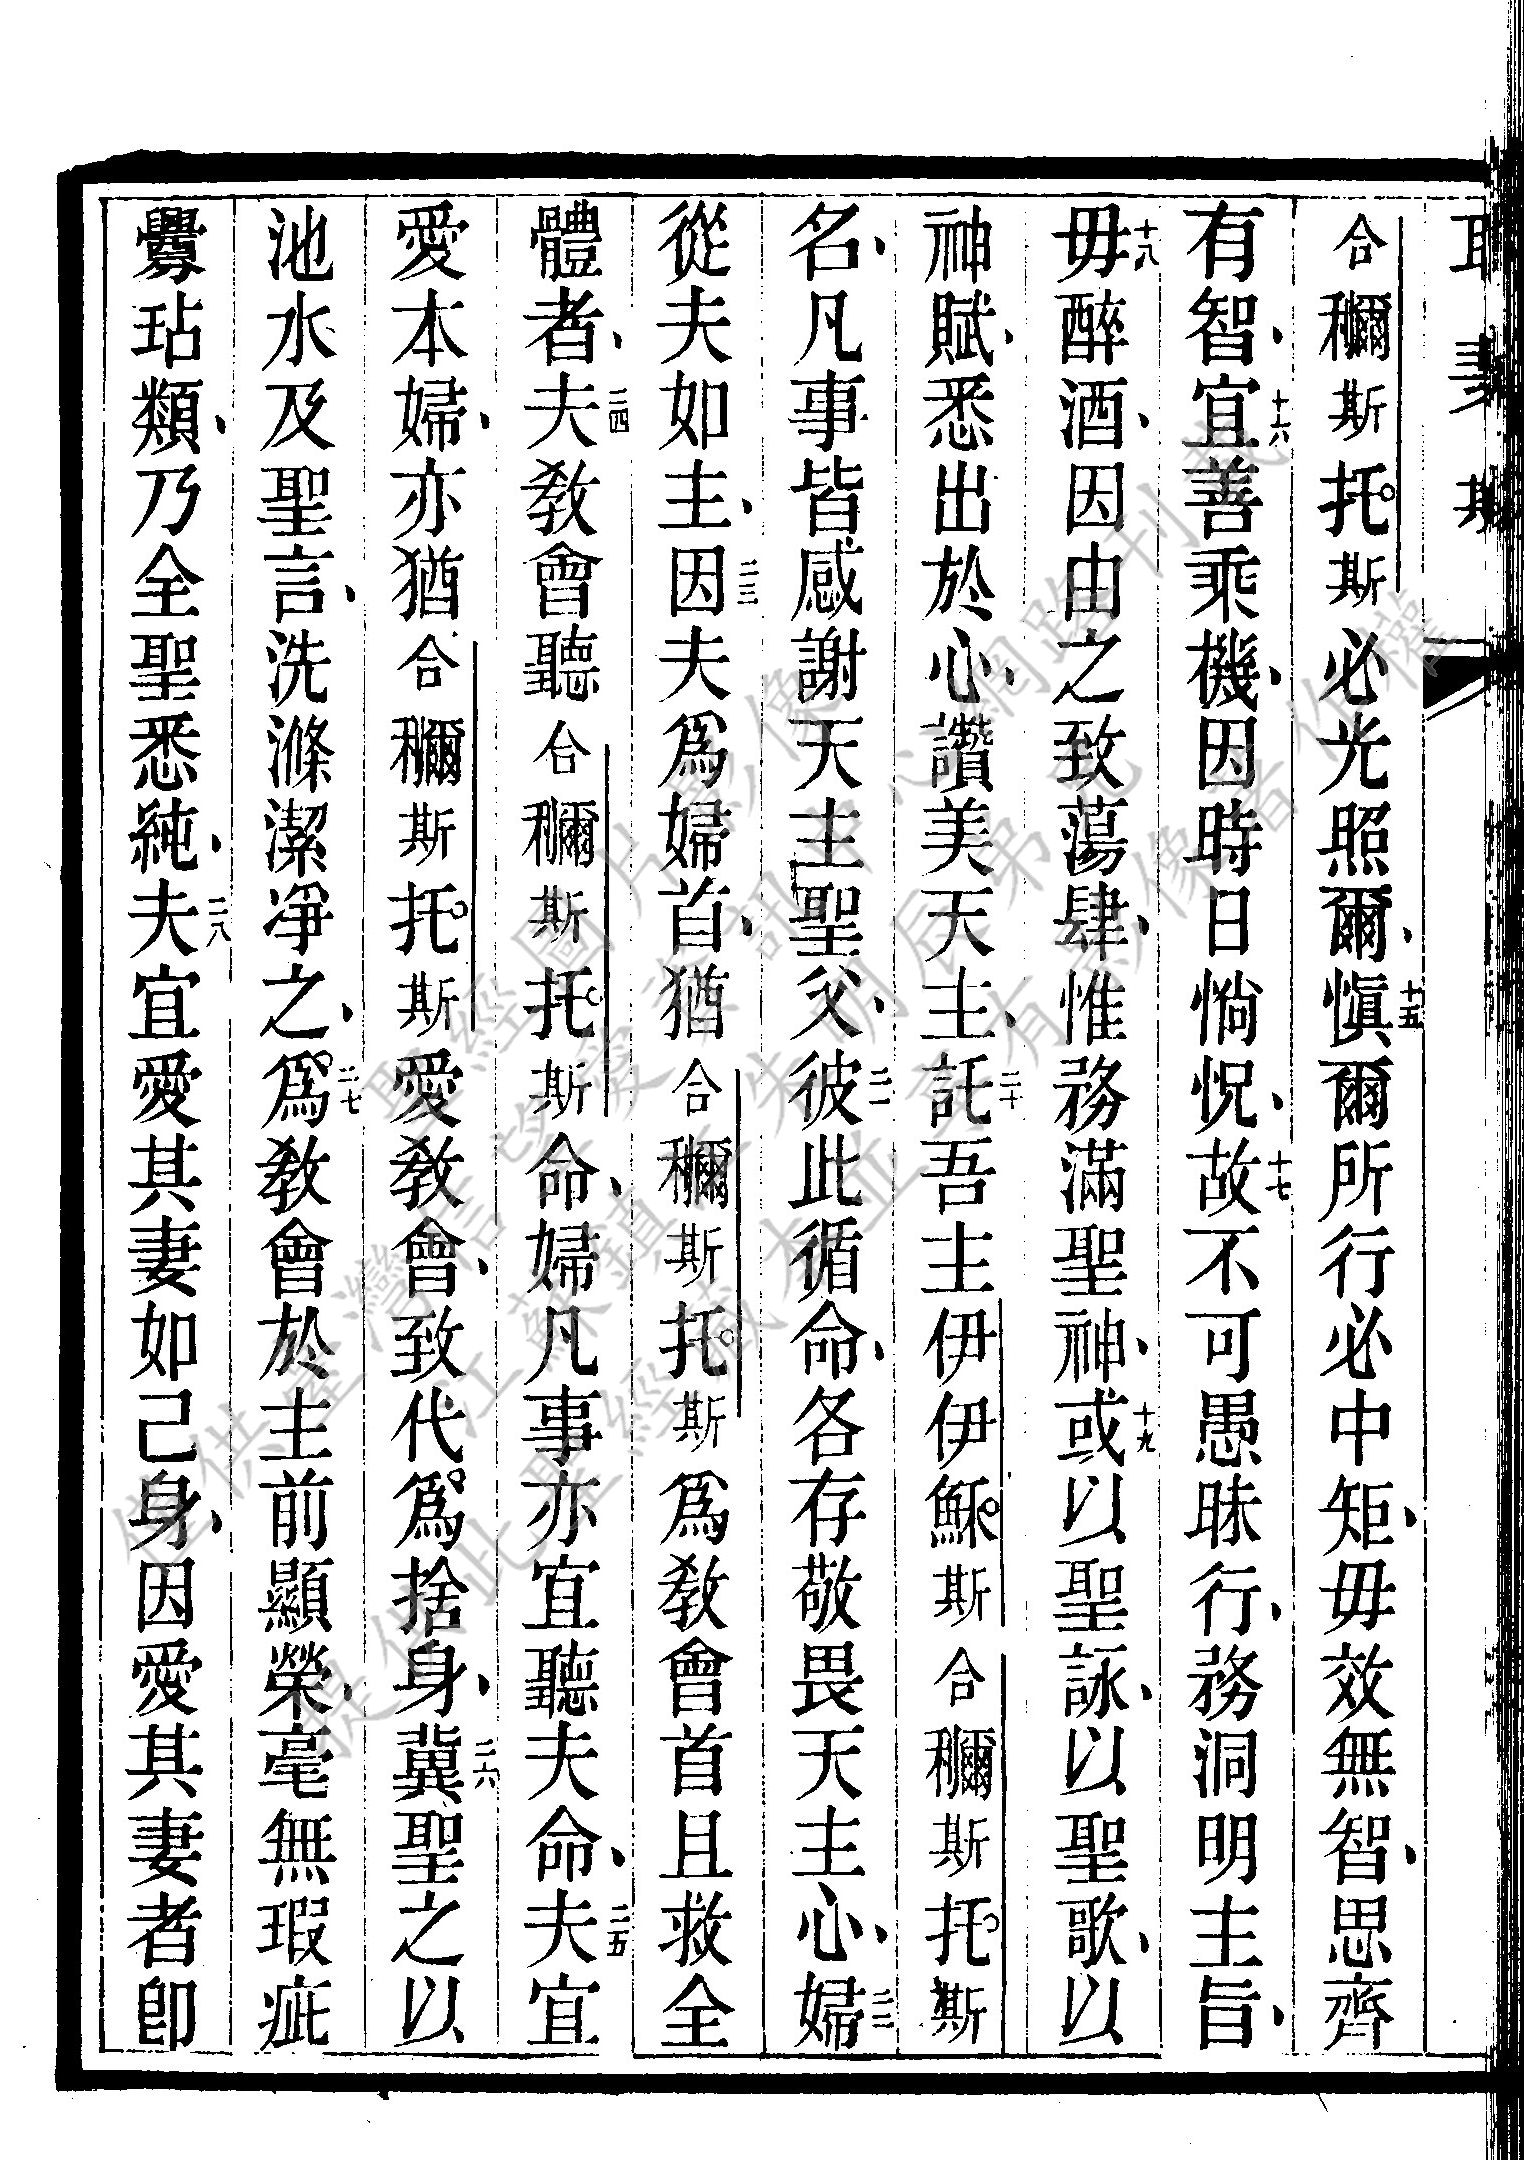 合穪斯托斯必光照爾、十五愼爾所行必中矩、毋效無智、思齊
有智、十六宜善乘機、因時日惝怳、十七故不可愚昧行、務洞明主旨、
十八毋醉酒、因由之致蕩肆、惟務滿聖神、十九或以聖詠、以聖歌、以
神賦、悉出於心、讚美天主、二十託吾主伊伊穌斯合穪斯托斯
名、凡事皆感謝天主聖父、二一彼此循命、各存敬畏天主心、二二婦
從夫如主、二三因夫爲婦首、猶合穪斯托斯爲教會首且救全
體者、二四夫教會聽合穪斯托斯命、婦凡事亦宜聽夫命、二五夫宜
愛本婦、亦猶合穪斯托斯愛教會、致代爲捨身、二六冀聖之以
池水及聖言、洗滌潔凈之、二七爲教會於主前顯榮、毫無瑕疵
釁玷類、乃全聖悉純、二八夫宜愛其妻如己身、因愛其妻者即